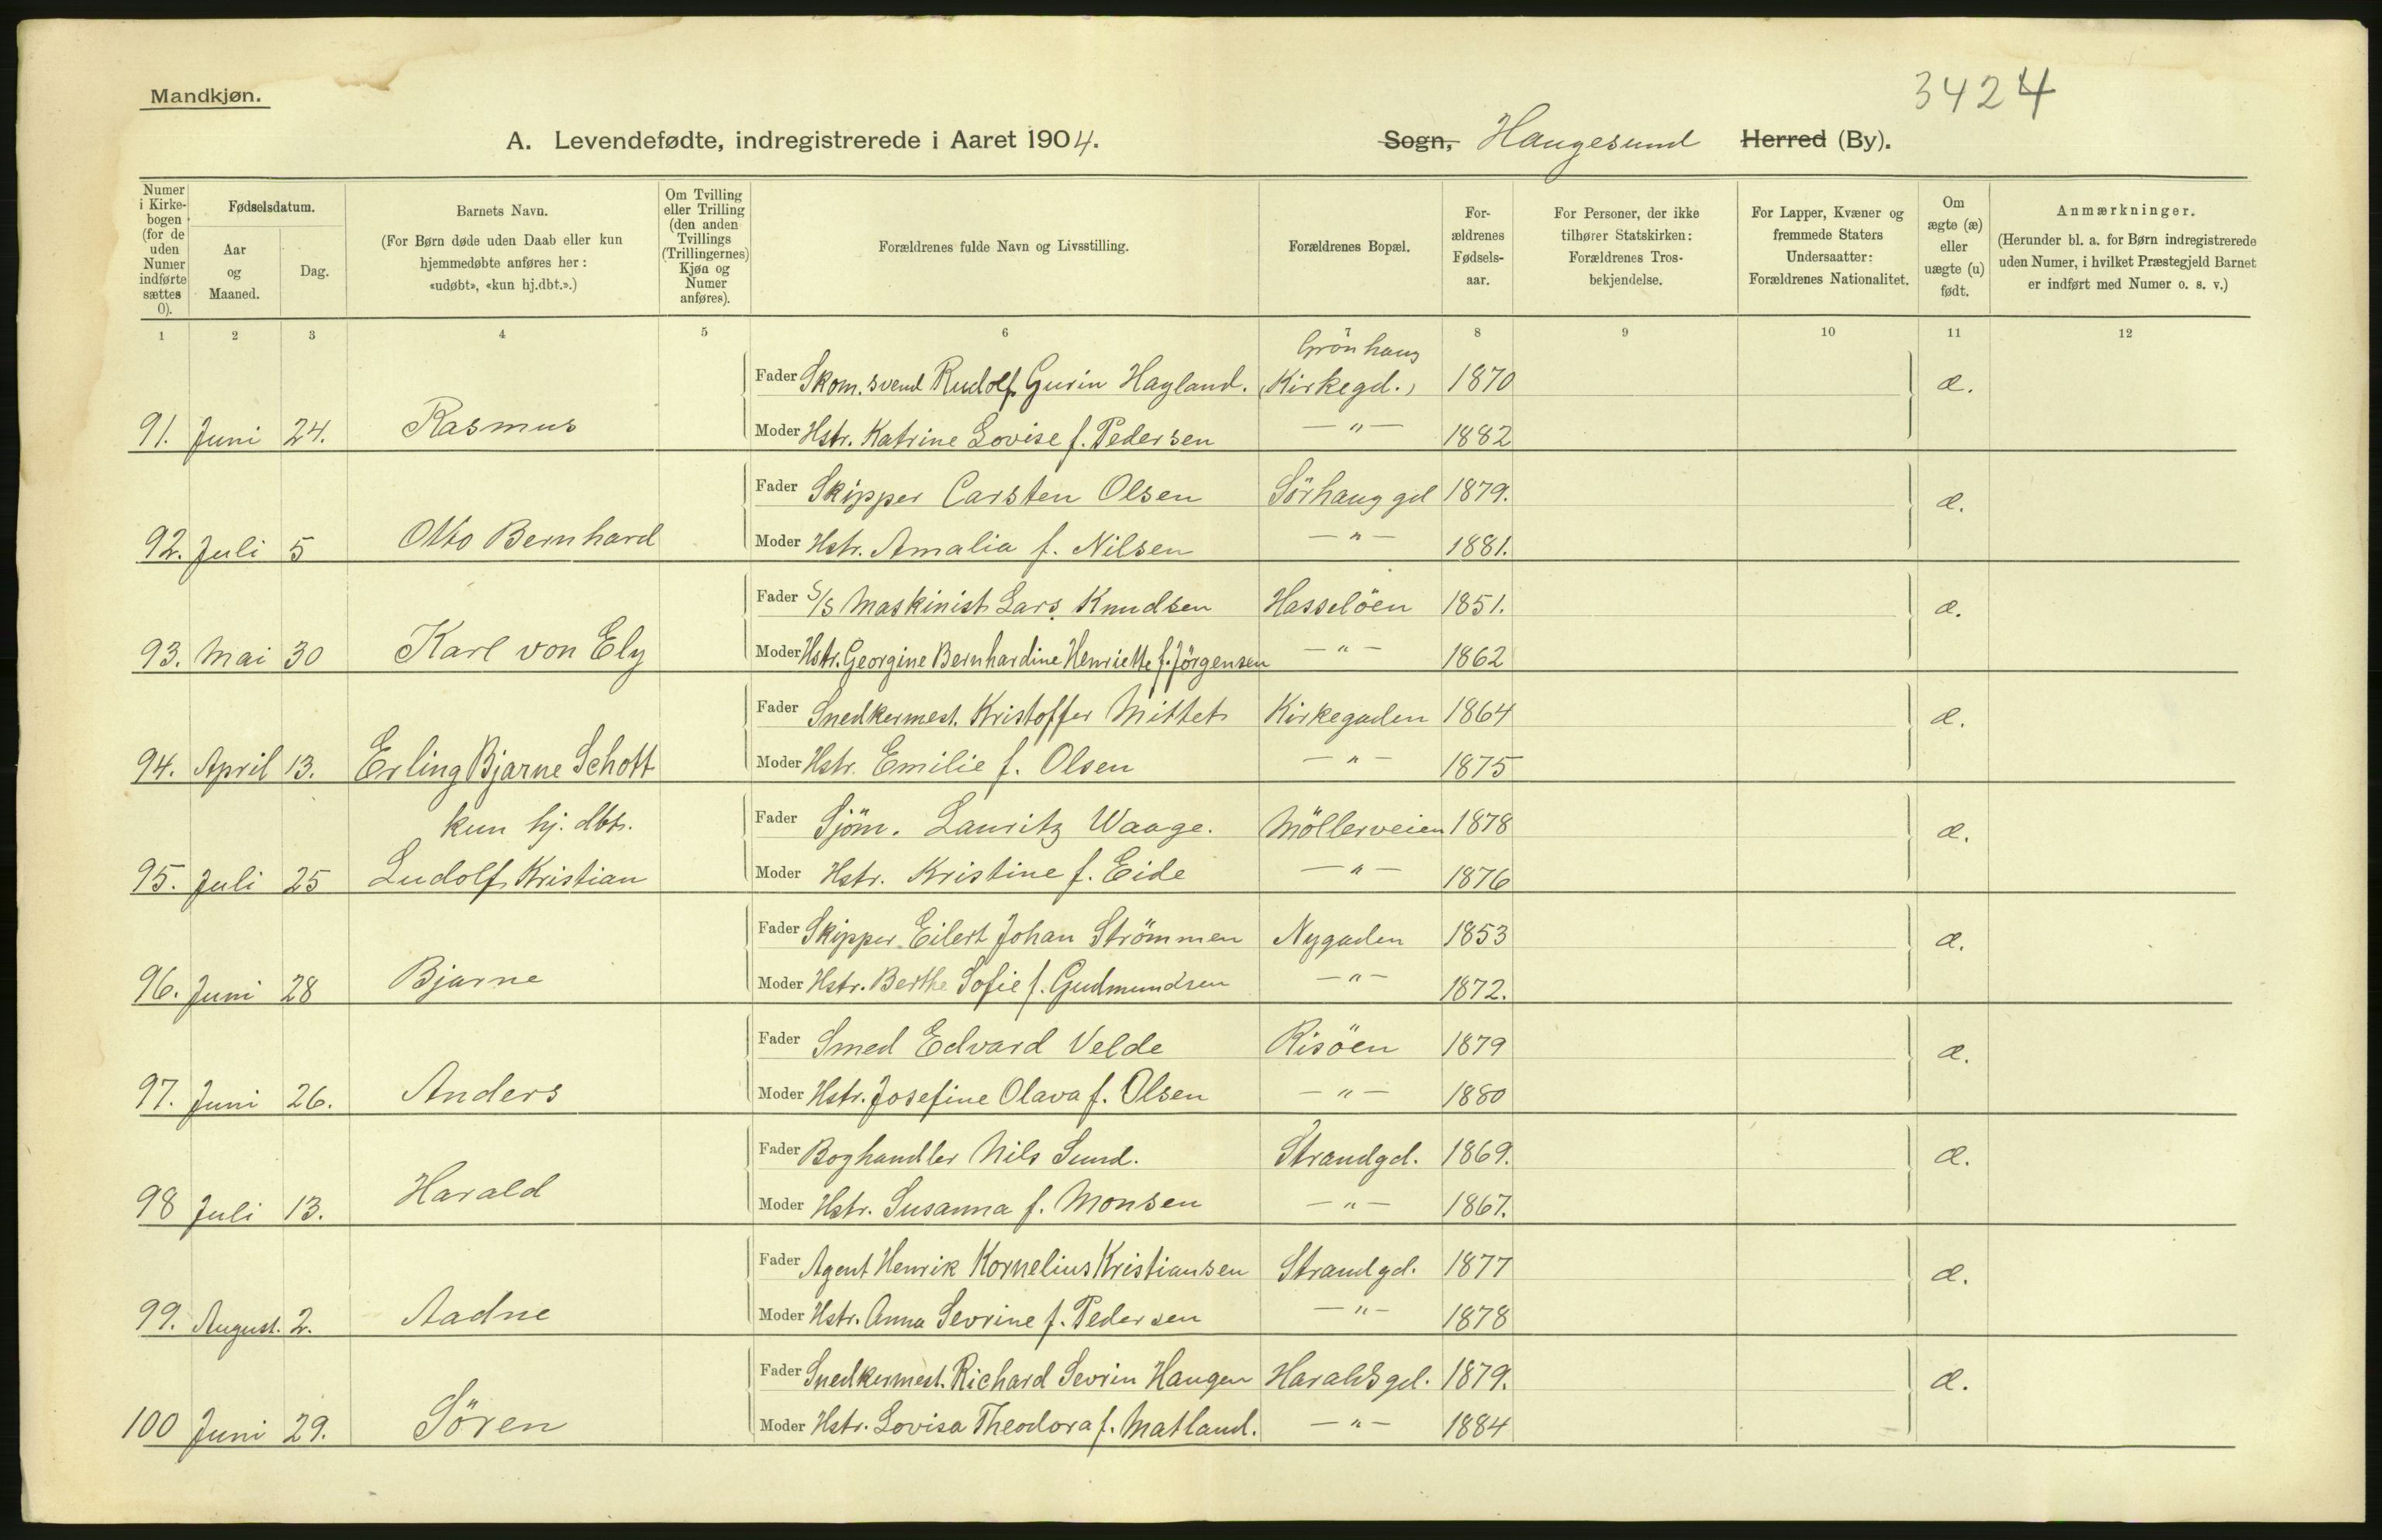 Mandkjøn.
3424
A. Levendefødte, indregistrerede i Aaret 1904.
Sogn, Haugesund Herred (By).
Numer i Kirke-bogen (for de uden Numer indførte sættes 0).
Fødselsdatum.
Aar og Maaned.
Dag.
Barnets Navn.
(For Børn døde uden Daab eller kun hjemmedøbte anføres her: «udøbt», «kun hj.dbt.».)
Om Tvilling eller Trilling (den anden Tvillings (Trillingernes) Kjøn og Numer anføres).
Forældrenes fulde Navn og Livsstilling.
Forældrenes Bopæl.
For-ældrenes Fødsels-aar.
For Personer, der ikke tilhører Statskirken: Forældrenes Tros-bekjendelse.
For Lapper, Kvæner og fremmede Staters Undersaatter: Forældrenes Nationalitet.
Om ægte (æ) eller uægte (u) født.
Anmærkninger.
(Herunder bl. a. for Børn indregistrerede uden Numer, i hvilket Præstegjeld Barnet er indført med Numer o. s. v.)
1 2 3 4 5 6 7 8 9 10 11 12
Grönhaug
Fader Skom. svend Rudolf Gurin Hagland. (Kirkegd.) 1870 æ.
91. Juni 24. Rasmus Moder Hstr. Katrine Lovise f. Pedersen — " — 1882
Fader Skipper Carsten Olsen Sörhauggd 1879. æ.
92. Juli 5 Otto Bernhard Moder Hstr. Amalia f. Nilsen — " — 1881.
Fader S/S Maskinist Lars Knudsen Hasselöen 1851. æ.
93. Mai 30 Karl von Ely Moder Hstr. Georgine Bernhardine Henriette f. Jörgensen — " — 1862
Fader Snedkermest. Kristoffer Mittet Kirkegaden 1864 æ.
94. April 13. Erling Bjarne Schott Moder Hstr. Emilie f. Olsen — " — 1875
kun hj. dbt. Fader Sjöm. Lauritz Waage. Möllerveien 1878 æ.
95. Juli 25 Ludolf Kristian Moder Hstr. Kristine f. Eide — " — 1876
Fader Skipper Eilert Johan Strömmen Nygaden 1853 æ.
96. Juni 28 Bjarne Moder Hstr. Berthe Sofie f. Gudmundsen — " — 1872.
Fader Smed Edvard Velde Risöen 1879 æ.
97. Juni 26. Anders Moder Hstr. Josefine Olava f. Olsen — " — 1880
Fader Boghandler Nils Sund. Strandgd. 1869. æ.
98 Juli 13. Harald Moder Hstr. Susanna f. Monsen — " — 1867.
Fader Agent Henrik Kornelius Kristiansen Strandgd. 1877 æ.
99. August. 2. Aadne Moder Hstr. Anna Sevrine f. Pedersen — " — 1878
Fader Snedkermest. Richard Sevrin Haugen Haraldsgd. 1879. æ.
100 Juni 29. Sören Moder Hstr. Lovisa Theodora f. Matland. — " — 1884